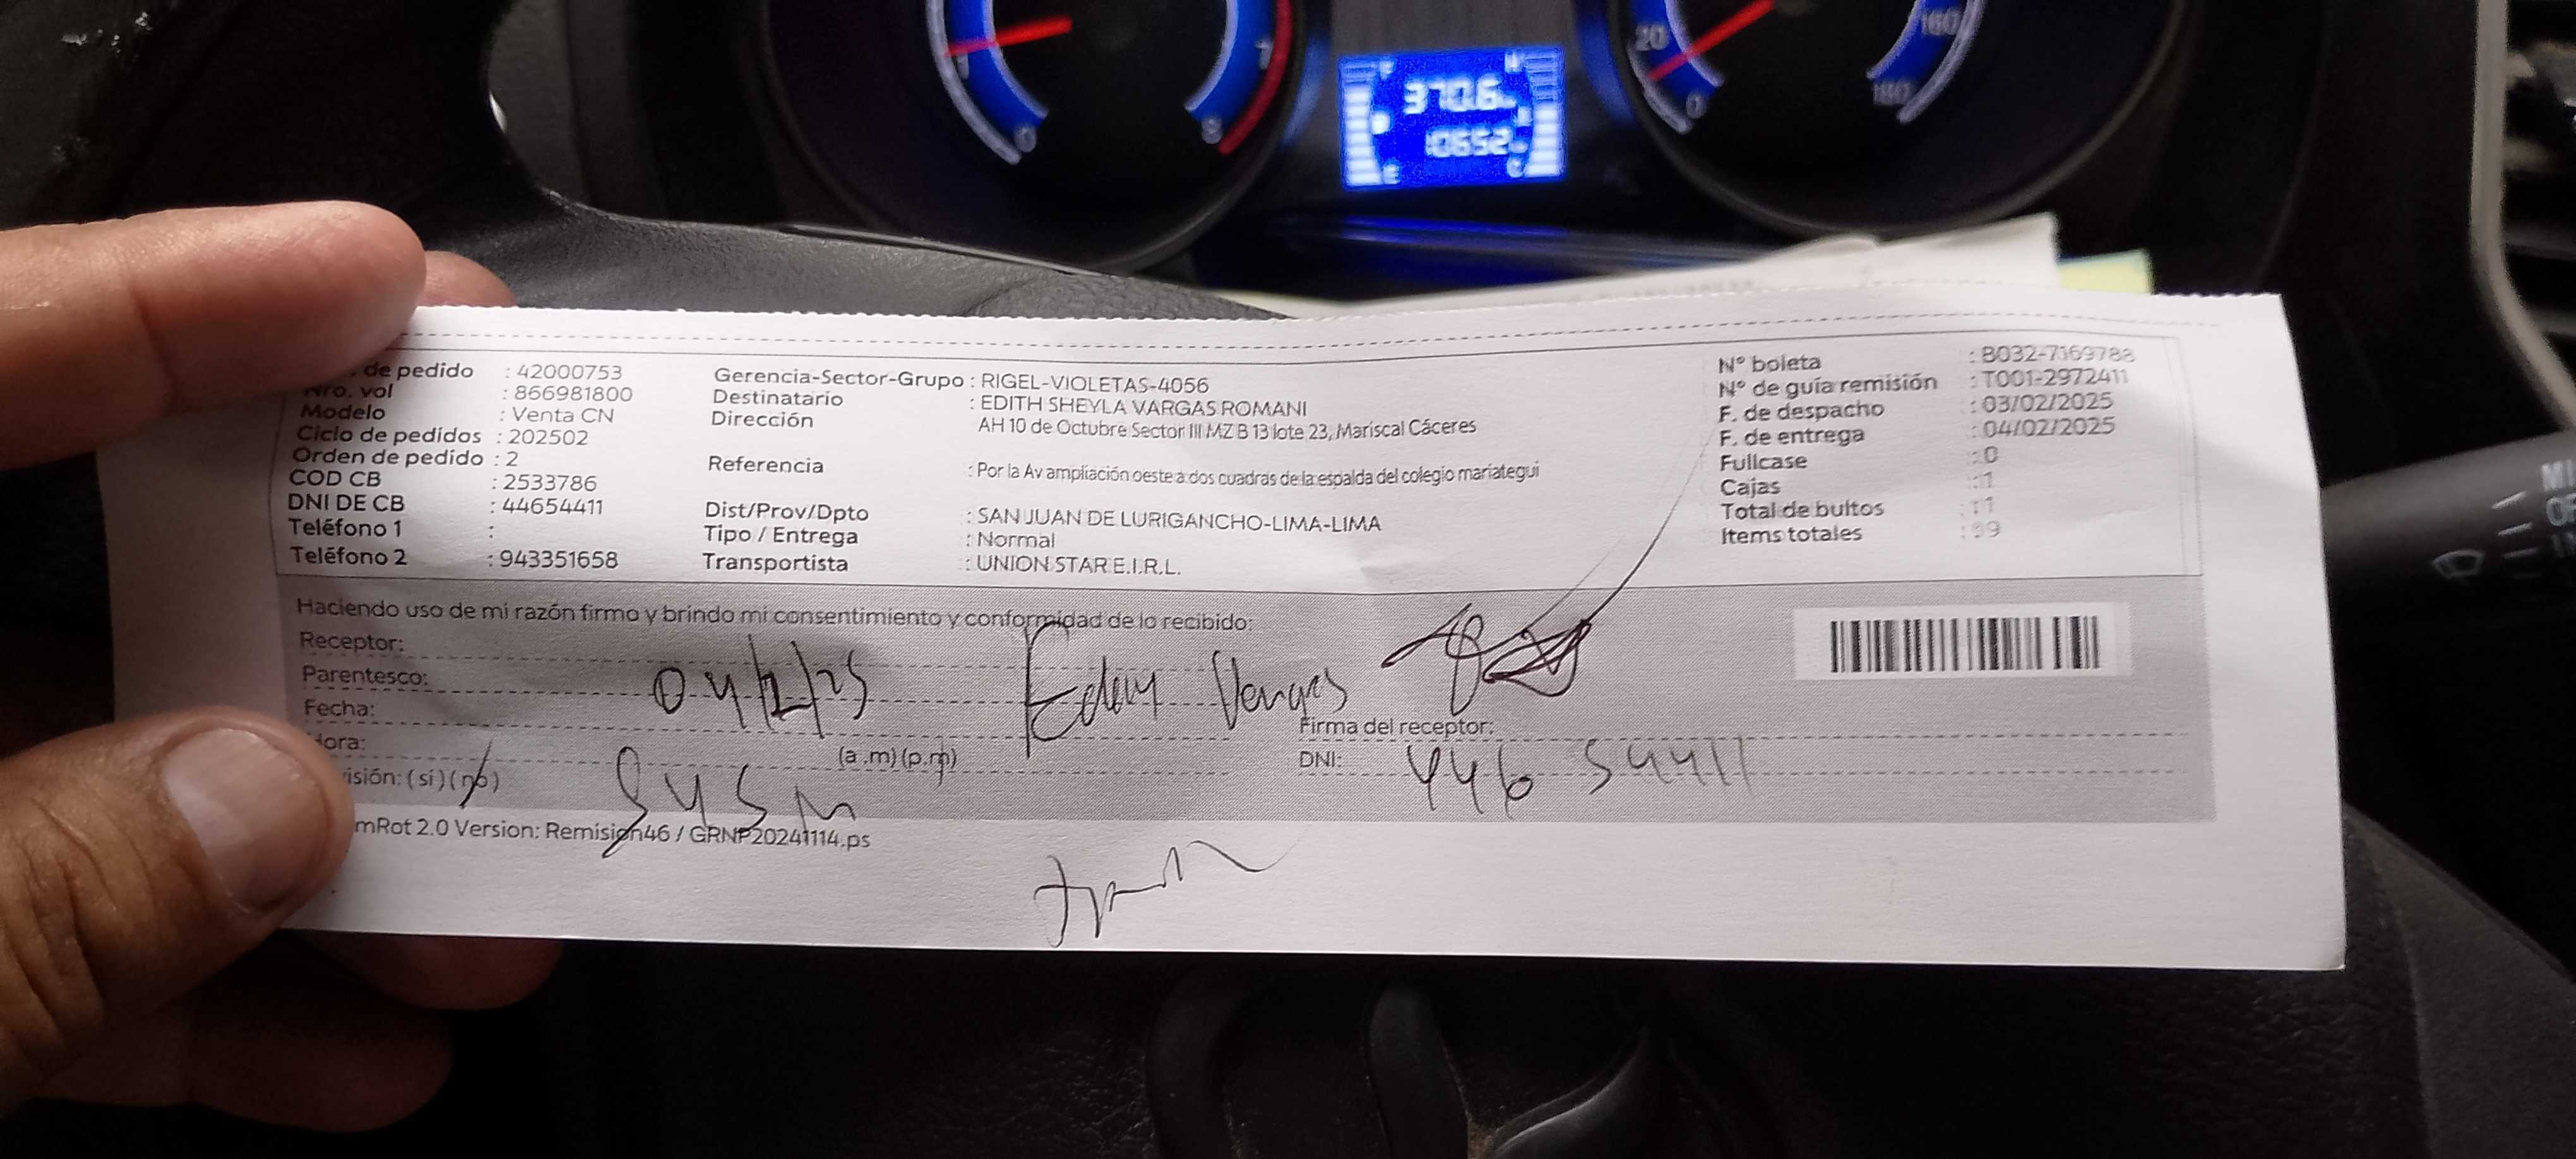 7
0
8
370.6
10652
20
0
160
180
de pedido : 42000753
Nro. vol : 866981800
Modelo : Venta CN
Ciclo de pedidos : 202502
Orden de pedido : 2
COD CB : 2533786
DNI DE CB : 44654411
Teléfono 1 :
Teléfono 2 : 943351658
Gerencia-Sector-Grupo : RIGEL-VIOLETAS-4056
Destinatario : EDITH SHEYLA VARGAS ROMANI
Dirección AH 10 de Octubre Sector III MZ B 13 lote 23, Mariscal Cáceres
Referencia : Por la Av ampliación oeste a dos cuadras de la espalda del colegio mariategui
Dist/Prov/Dpto : SAN JUAN DE LURIGANCHO-LIMA-LIMA
Tipo / Entrega : Normal
Transportista : UNION STAR E.I.R.L.
Nº boleta : B032-7169788
Nº de guía remisión : T001-2972411
F. de despacho : 03/02/2025
F. de entrega : 04/02/2025
Fullcase : 0
Cajas : 1
Total de bultos : 11
Items totales : 39
Haciendo uso de mi razón firmo y brindo mi consentimiento y conformidad de lo recibido:
Receptor:
Parentesco:
Fecha: 04/2/25
Vargas
Firma del receptor:
Hora: (a.m) (p.m)
DNI: 446 54411
isión: (si) (no)
mRot 2.0 Version: Remision46 / GRNP20241114.ps